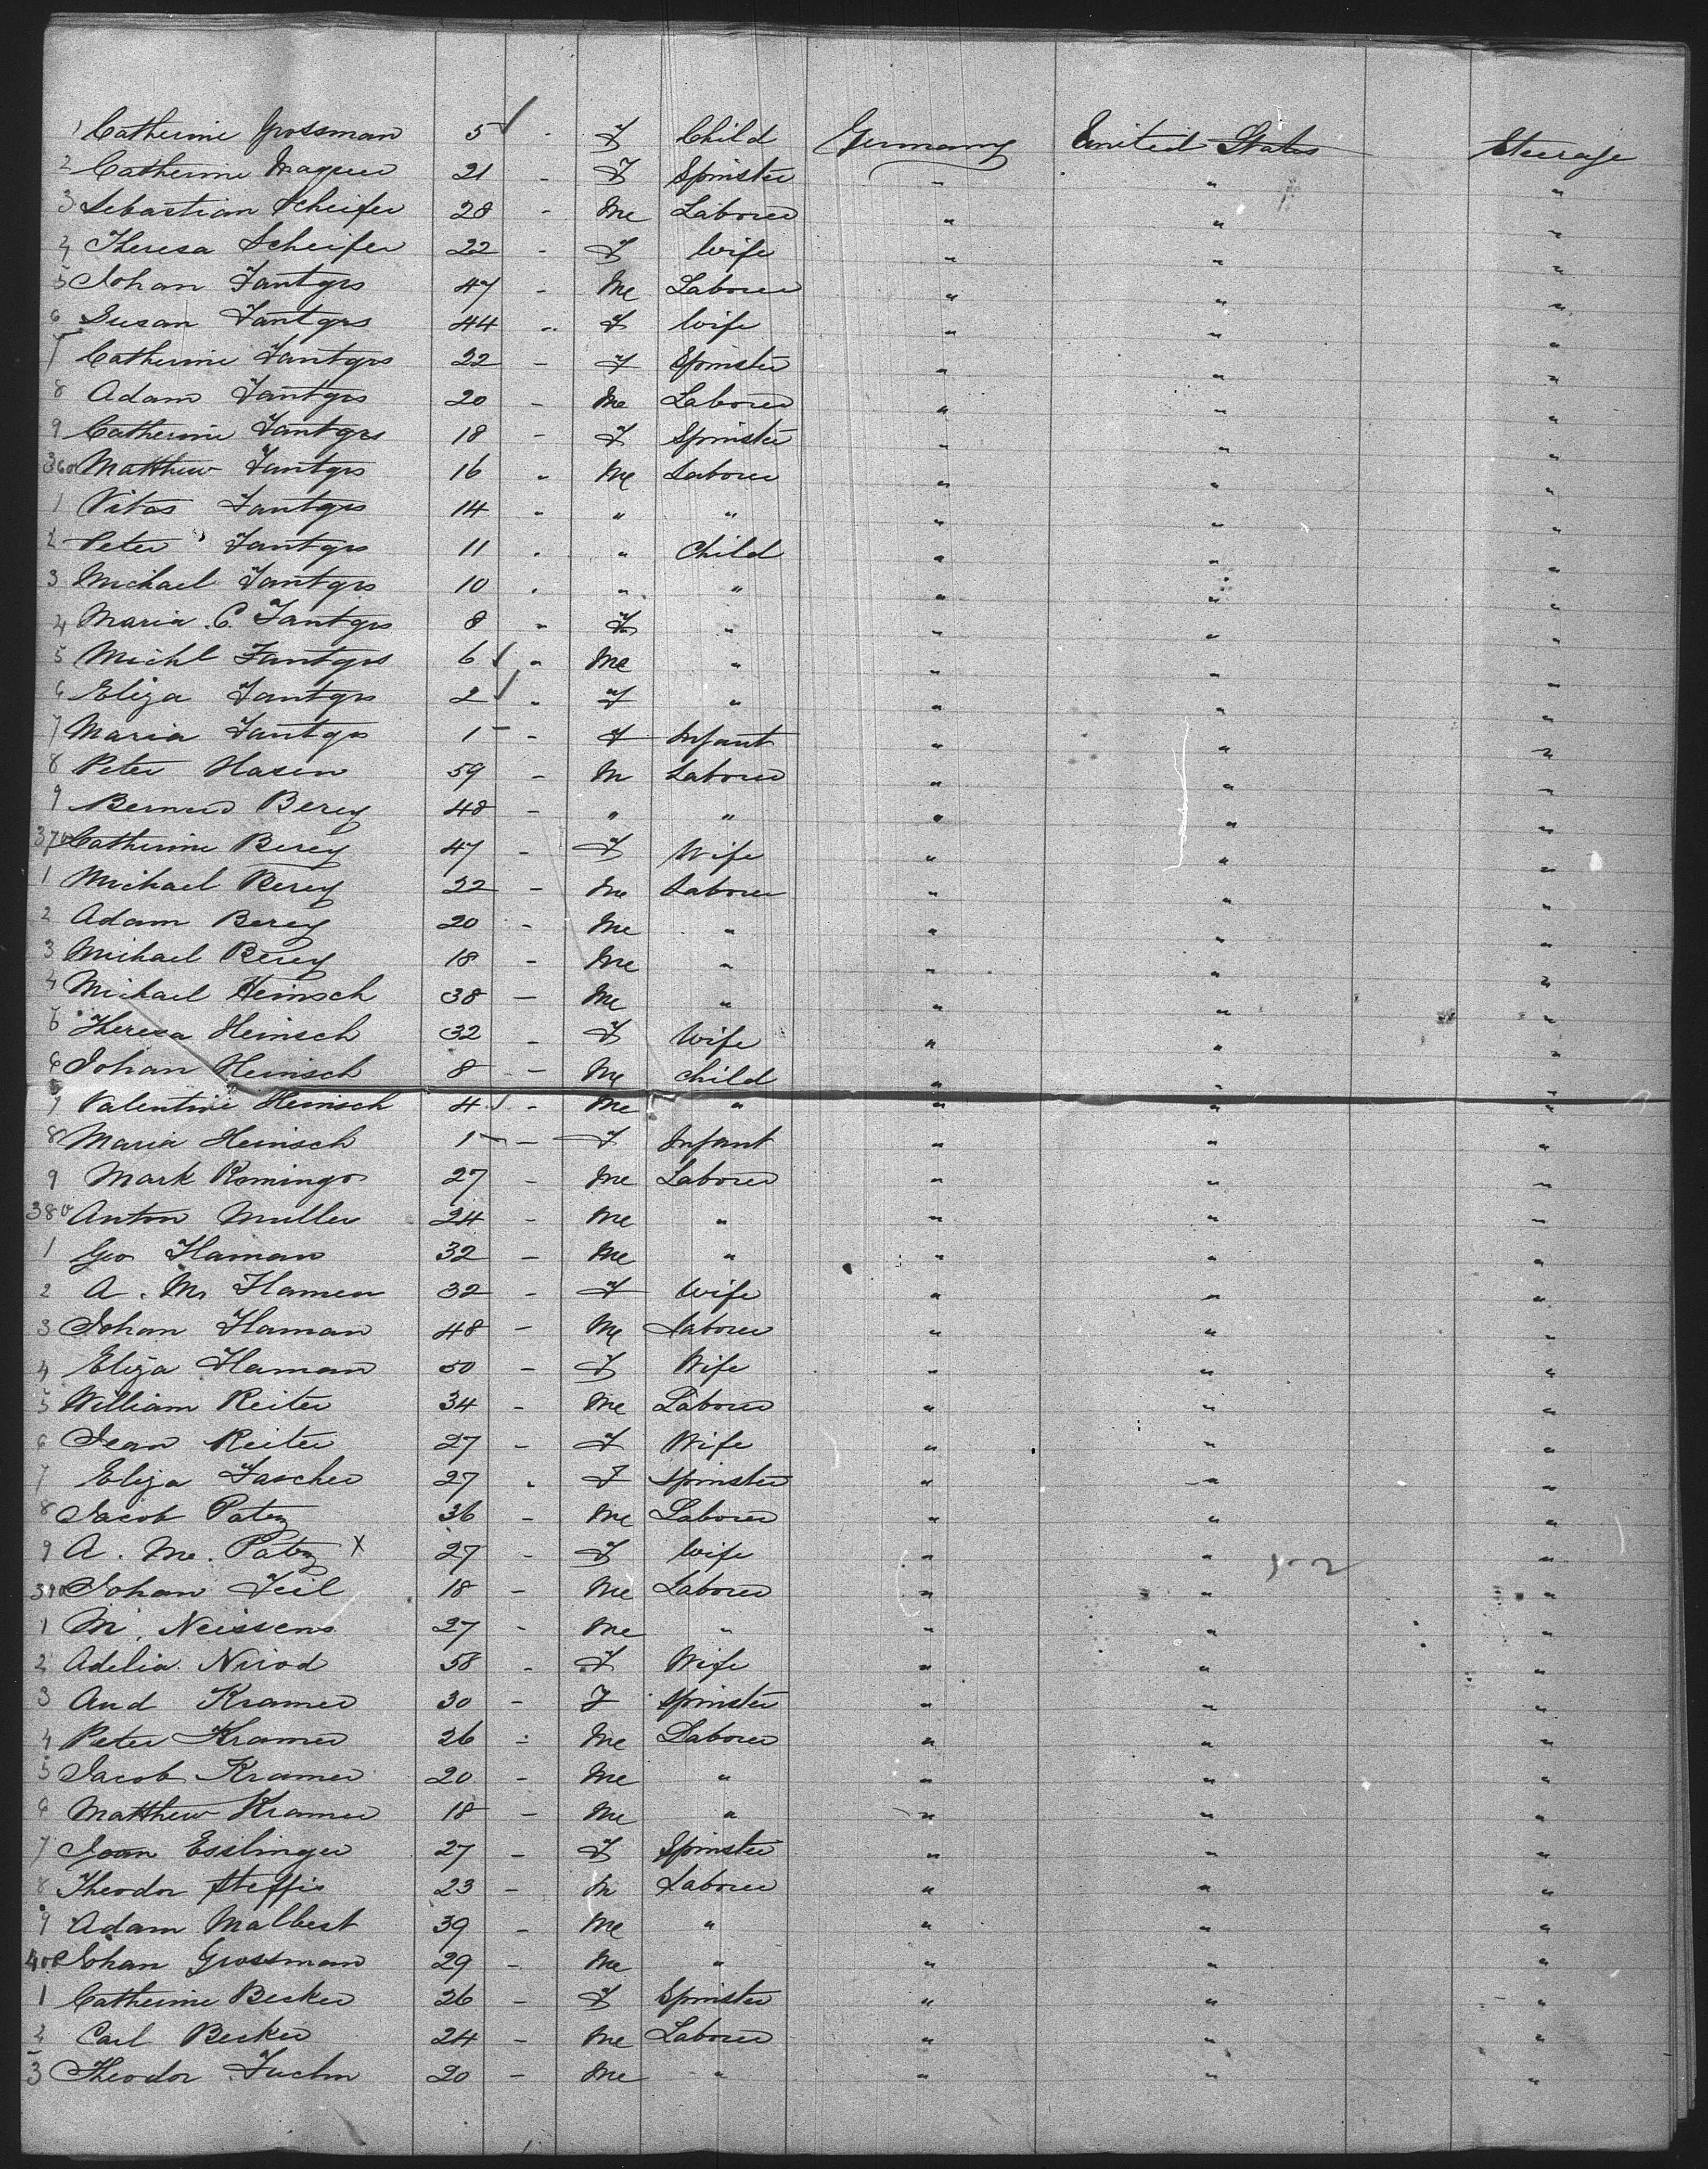 1 Catherine Grossman 5 - F Child Germany United States Steerage
2 Catherine Wagner 21 - F Spinster " " "
3 Sebastian Scheifer 28 - Me Laborer " " "
4 Theresa Scheifer 22 - F Wife " " "
5 Johan Fantgrs 47 - Me Laborer " " "
6 Susan Fantgrs 44 - F Wife " " "
7 Catherine Fantgrs 22 - F Spinster " " "
8 Adam Fantgrs 20 - Me Laborer " " "
9 Catherine Fantgrs 18 - F Spinster " " "
360 Matthew Fantgrs 16 " Me Laborer " " "
1 Vitas Fantgrs 14 " " " " " "
2 Peter Fantgrs 11 " " Child " " "
3 Michael Fantgrs 10 " " " " " "
4 Maria C. Fantgrs 8 " F " " " "
5 Michl Fantgrs 6 " Me " " " "
6 Eliza Fantgrs 2 " F " " " "
7 Maria Fantgrs 1 - F Infant " " "
8 Peter Hasen 59 - M Laborer " " "
9 Berey 48 - " " " " "
370 Catherine Berey 47 - F Wife " " "
1 Michael Berey 22 - Me Laborer " " "
2 Adam Berey 20 - Me " " " "
3 Michael Berey 18 - Me " " " "
4 Michael Heinsch 38 - Me " " " "
5 Theresa Heinsch 32 - F Wife " " "
6 Johan Heinsch 8 - Me Child " " "
7 Valentine Heinsch 4 - Me " " " "
8 Maria Heinsch 1 - F Infant " " "
9 Mark Romingo 27 - Me Laborer " " "
380 Anton Muller 24 - Me " " " "
1 Geo Haman 32 - Me " " " "
2 A. M. Hamen 32 - F Wife " " "
3 Johan Haman 48 - Me Laborer " " "
4 Eliza Haman 50 - F Wife " " "
5 William Reiter 34 - Me Laborer " " "
6 Jean Reiter 27 - F Wife " " "
7 Eliza Fascher 27 " F Spinster " " "
8 Jacob Patz 36 - Me Laborer " " "
9 A. Me. Patz X 27 - F Wife " " "
390 Johan Feil 18 - Me Laborer " " "
1 M. Neissens 27 - Me " " " "
2 Adelia Nirod 58 - F Wife " " "
3 And Kramer 30 - F Spinster " " "
4 Peter Kramer 26 - Me Laborer " " "
5 Jacob Kramer 20 - Me " " " "
6 Matthew Kramer 18 - Me " " " "
7 Joan Esslinger 27 - F Spinster " " "
8 Theodor Steffis 23 - M Laborer " " "
9 Adam Malbest 39 - Me " " " "
400 Johan Grossman 29 - Me " " " "
1 Catherine Becker 26 - F Spinster " " "
2 Carl Becker 24 - Me Laborer " " "
3 Theodor 20 - Me " " " "